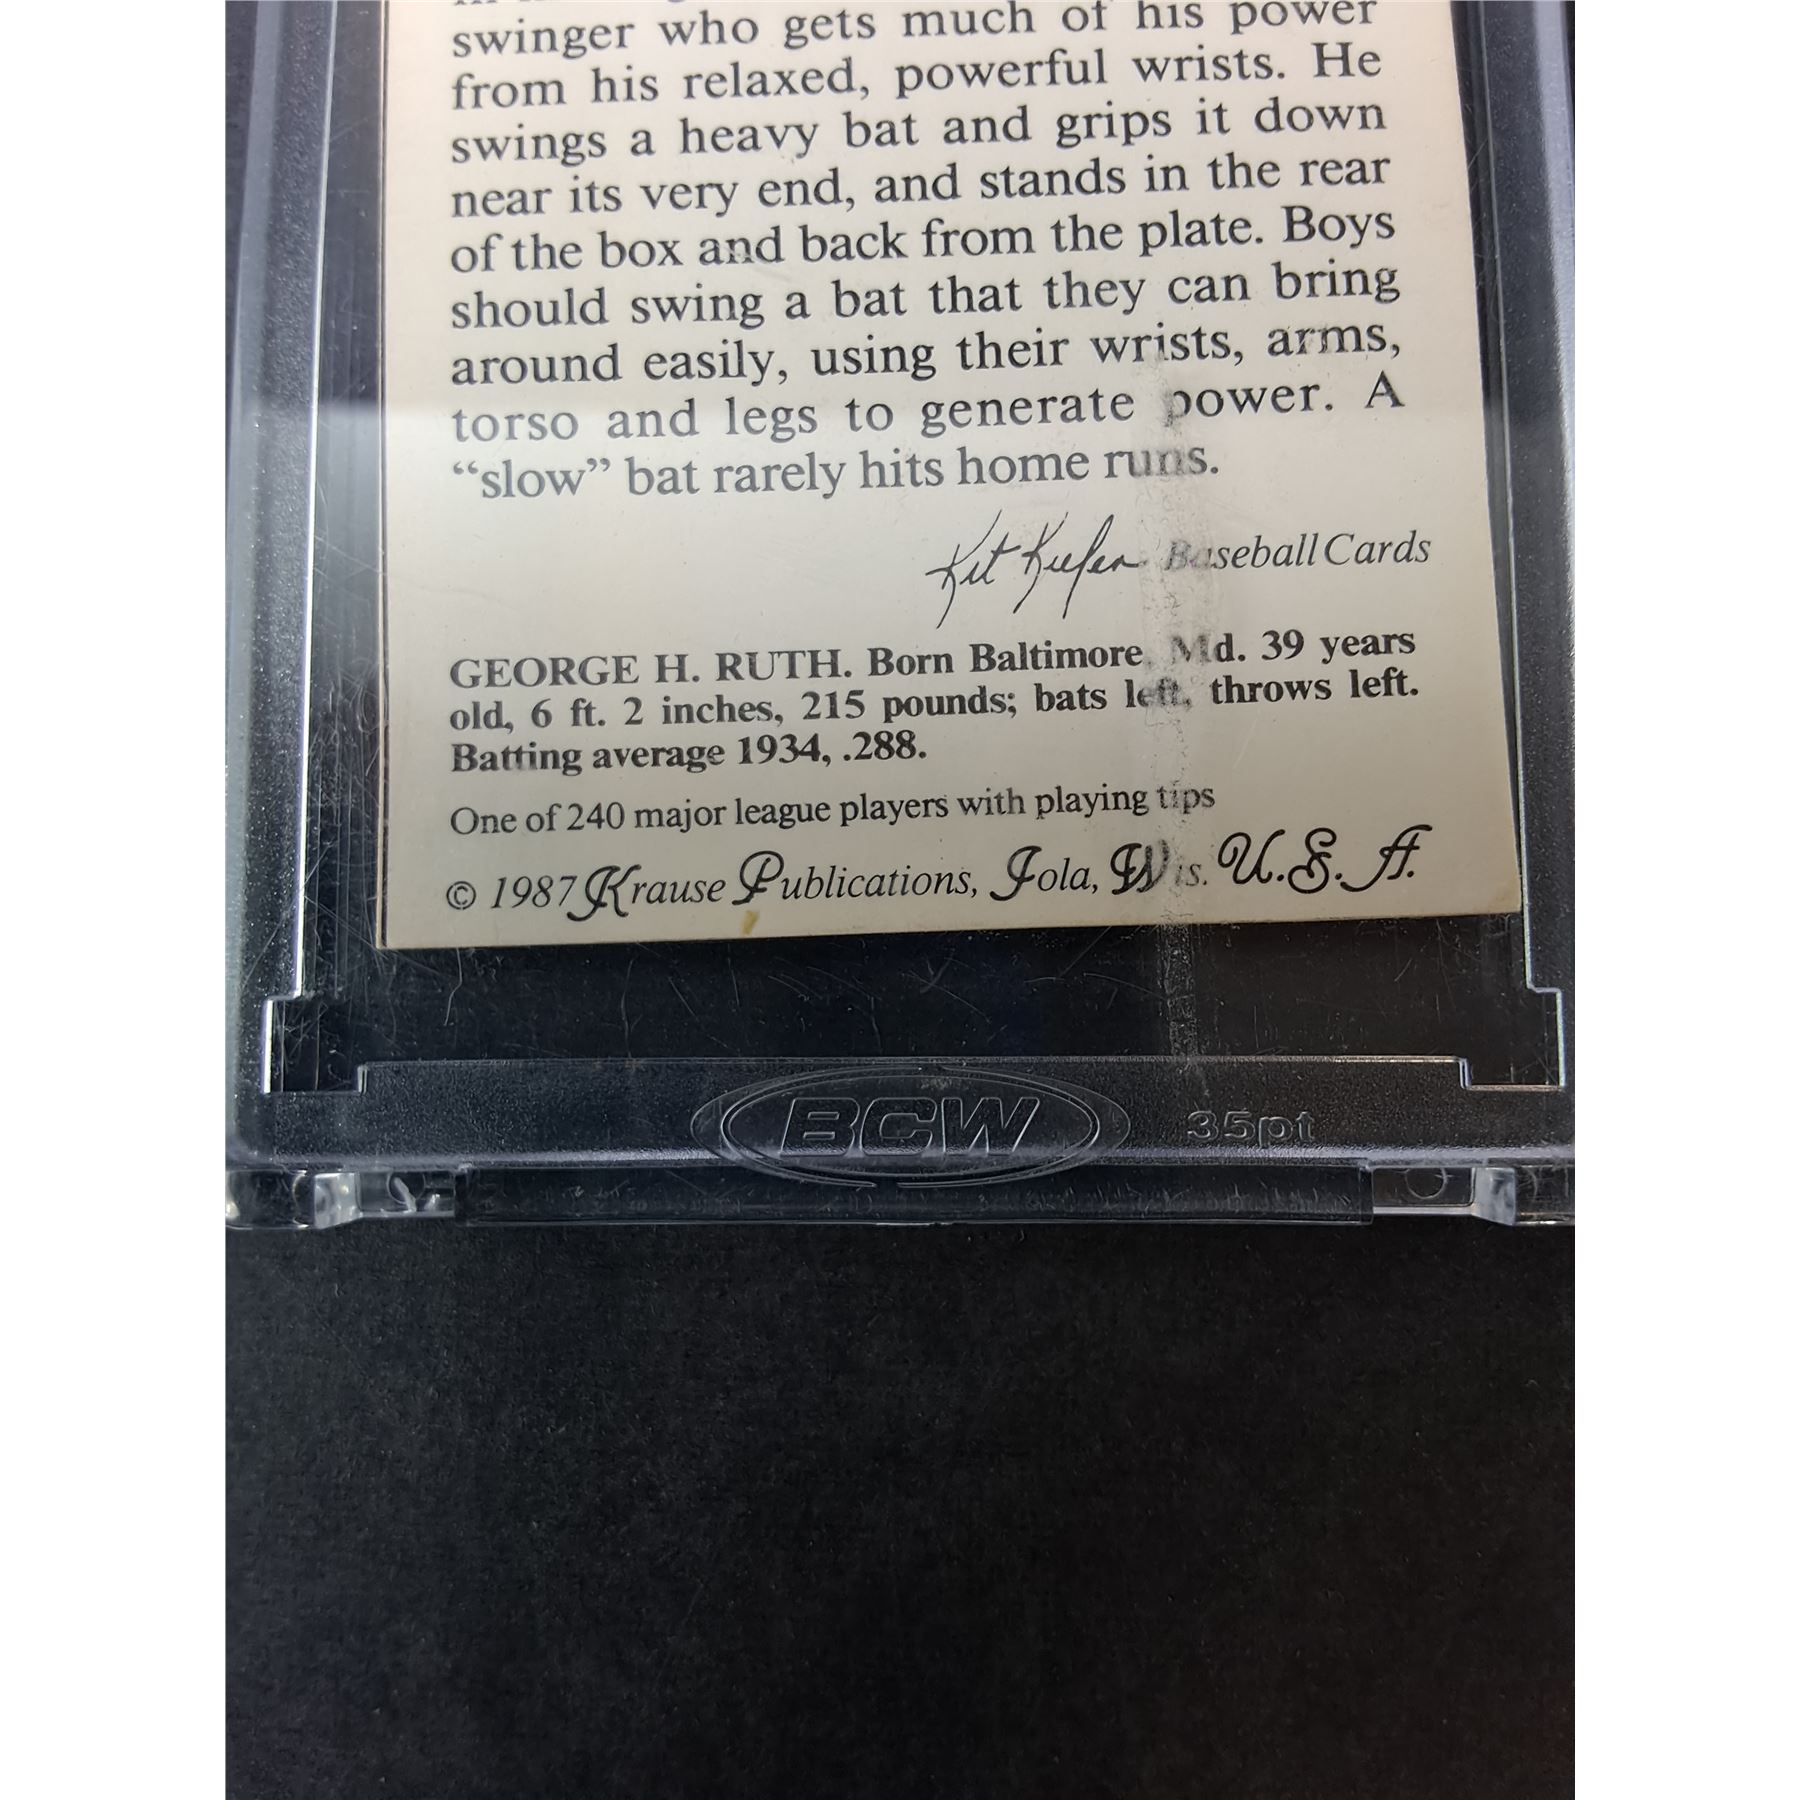 swinger who gets much of his power
from his relaxed, powerful wrists. He
swings a heavy bat and grips it down
near its very end, and stands in the rear
of the box and back from the plate. Boys
should swing a bat that they can bring
around easily, using their wrists, arms,
torso and legs to generate power. A
“slow” bat rarely hits home runs.
Kit Kiefer Baseball Cards
GEORGE H. RUTH. Born Baltimore, Md. 39 years
old, 6 ft. 2 inches, 215 pounds; bats left, throws left.
Batting average 1934, .288.
One of 240 major league players with playing tips
© 1987 Krause Publications, Iola, Wis. U.S.A.
BCW 35pt